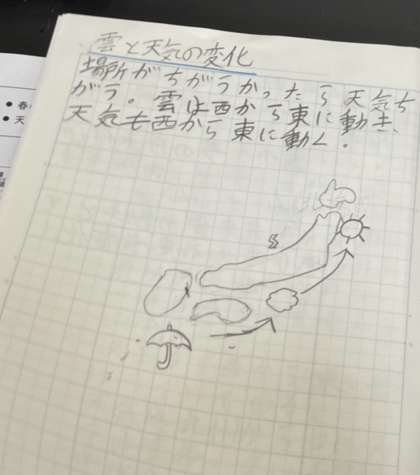 雲と天気の変化
場所がちがうかったら天気ち
がう。雲は西から東に動き、
天気も西から東に動く。
● 春
● 天